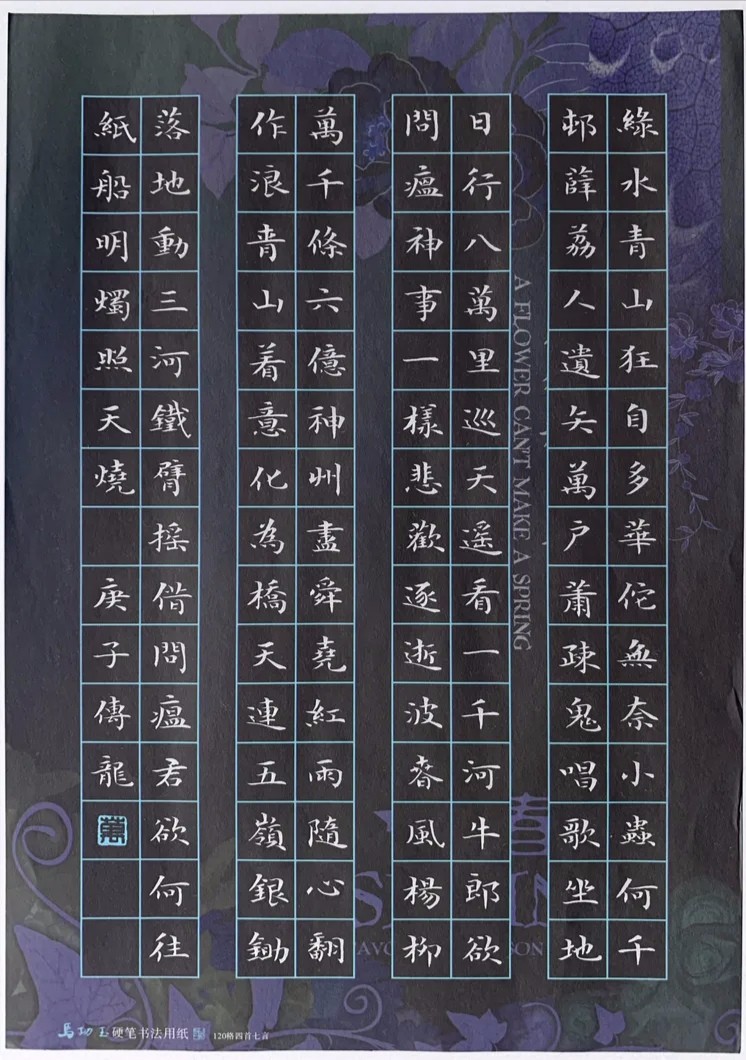 綠水青山狂自多華佗無奈小蟲何千
邨薜荔人遺矢萬户蕭疎鬼唱歌坐地
日行八萬里巡天遥看一千河牛郎欲
問瘟神事一樣悲歡逐逝波春風楊柳
萬千條六億神州盡舜堯紅雨隨心翻
作浪青山着意化為橋天連五嶺銀鋤
落地動三河鐵臂摇借問瘟君欲何往
紙船明燭照天燒 庚子傳龍
A FLOWER CAN'T MAKE A SPRING
硬笔书法用纸 120格四首七言